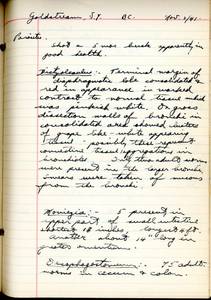 Goldstream, S.P. BC. Nov. 2/41.
Parasites.
Shot a 5 mos. buck apparently in
good health.
Dictyocaulus: - Terminal margin of
diaphragmatic lobe consolidated &
red in appearance in marked
contrast to normal tissue which
was pinkish white. On gross
dissection walls of bronchi in
consolidated area showed clusters
of grape like - white appearing
tissue possibly that repeated
connective tissue) aggregating
bronchioles Only two adult worms
were present in the larger bronchi
Smears were taken of mucous
from the bronchi.
Moniezia: - 5 present in
upper part of small intestine
another 18 inches longest of.
another about 14" long in
greater omentum.
Oesophagostomum: - 75 adult
worms in cecum & colon.